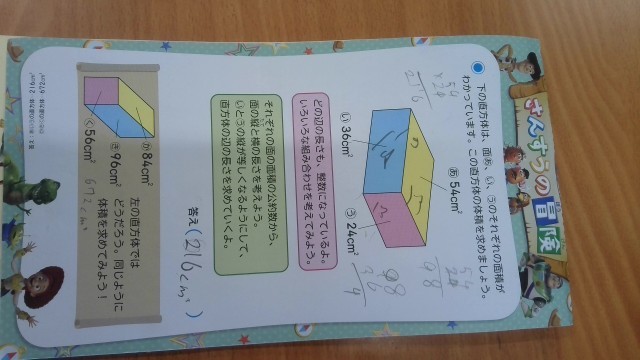 さんすうの冒険
下の直方体は、面あ、い、うのそれぞれの面積が
わかっています。この直方体の体積を求めましょう。
あ 54cm²
い 36cm²
う 24cm²
どの辺の長さも、整数になっているよ。
いろいろな組み合わせを考えてみよう。
それぞれの面の面積の公約数から、
面の縦と横の長さを考えよう。
いとうの縦が等しくなるようにして、
直方体の辺の長さを求めていくよ。
答え( 216cm³ )
左の直方体では
どうだろう。同じように
体積を求めてみよう!
か 84cm²
き 96cm²
く 56cm²
672cm³